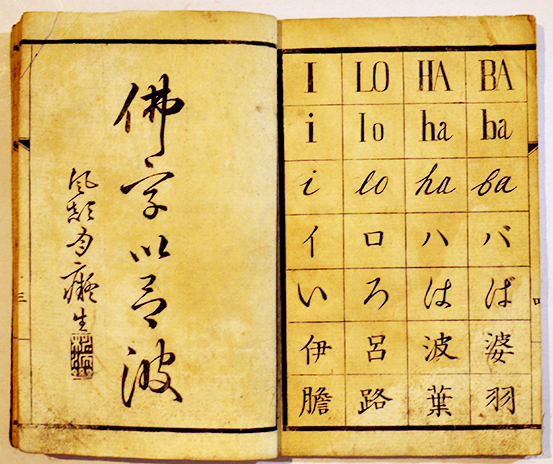 佛字以呂波
I LO HA BA
i lo ha ba
i lo ha ba
イ ロ ハ バ
い ろ は ば
伊 呂 波 婆
膽 路 葉 羽